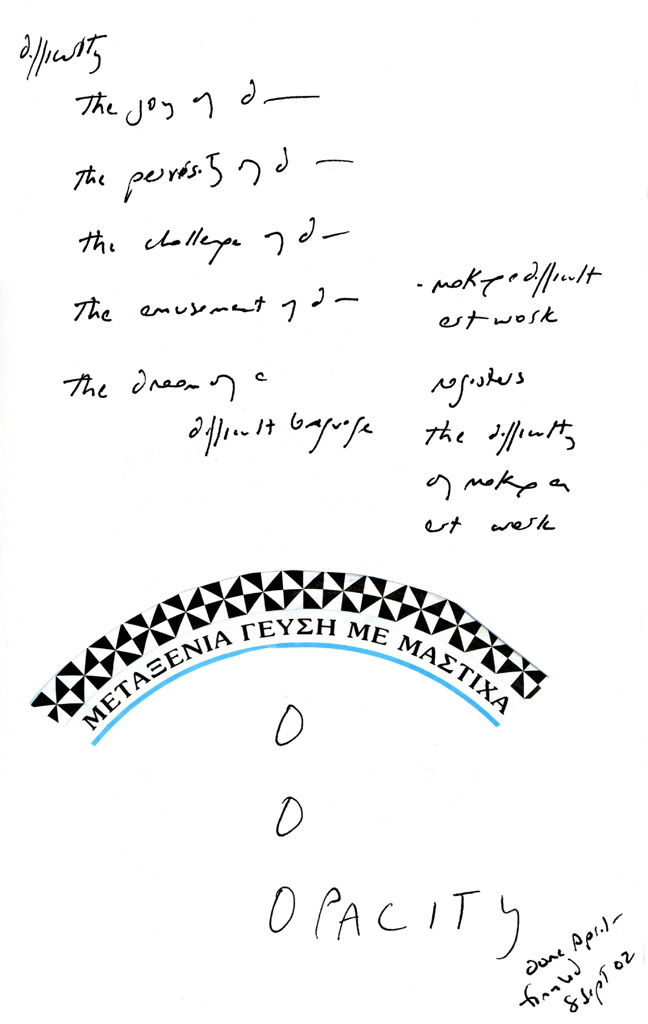 difficulty
the joy of d —
the perversity of d —
the challenge of d —
the amusement of d —
the dream of a
difficult language
- making a difficult
art work
registers
the difficulty
of making an
art work
ΜΕΤΑΞΕΝΙΑ ΓΕΥΣΗ ΜΕ ΜΑΣΤΙΧΑ
O
O
OPACITY
done April -
finished
8 Sept 02